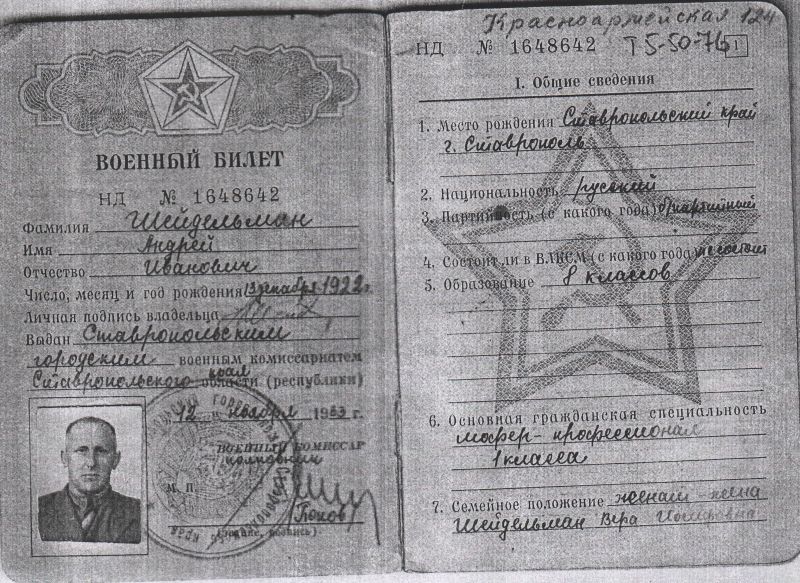 ВОЕННЫЙ БИЛЕТ
НД № 1648642
Фамилия Шейдельман
Имя Андрей
Отчество Иванович
Число, месяц и год рождения 13 декабря 1922 г.
Личная подпись владельца
Выдан Ставропольским
городским военным комиссариатом
Ставропольского края области (республики)
12 ноября 1963 г.
ВОЕННЫЙ КОМИССАР
полковник
М. П.
Попов
Красноармейская 124
НД № 1648642 Т 5-50-76 1
I. Общие сведения
1. Место рождения Ставропольский край
г. Ставрополь
2. Национальность русский
3. Партийность (с какого года) б/партийный
4. Состоит ли в ВЛКСМ (с какого года) не состоит
5. Образование 8 классов
6. Основная гражданская специальность
шофер-профессионал
1 класса
7. Семейное положение женат - жена
Шейдельман Вера